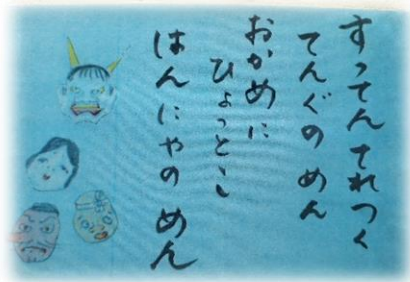 すってんてれつく
てんぐのめん
おかめに
ひょっとこ
はんにやのめん